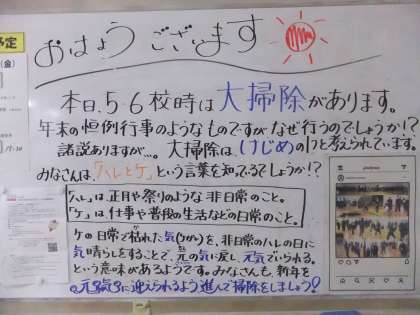 おはようございます
予定
(金)
本日、5・6校時は大掃除があります。
年末の恒例行事のようなものですがなぜ行うのでしょうか!?
諸説ありますが…。大掃除は、けじめの1つと考えられています。
みなさんは、「ハレとケ」という言葉を知ってるでしょうか!?
「ハレ」は正月や祭りのような非日常のこと。
「ケ」は仕事や普段の生活などの日常のこと。
ケの日常で枯れた気(ケガレ)を、非日常のハレの日に
気晴らしをすることで、元の気に戻し、元気でいられる。
という意味があるようです。みなさんも、新年を
元気に迎えられるよう進んで掃除をしましょう!